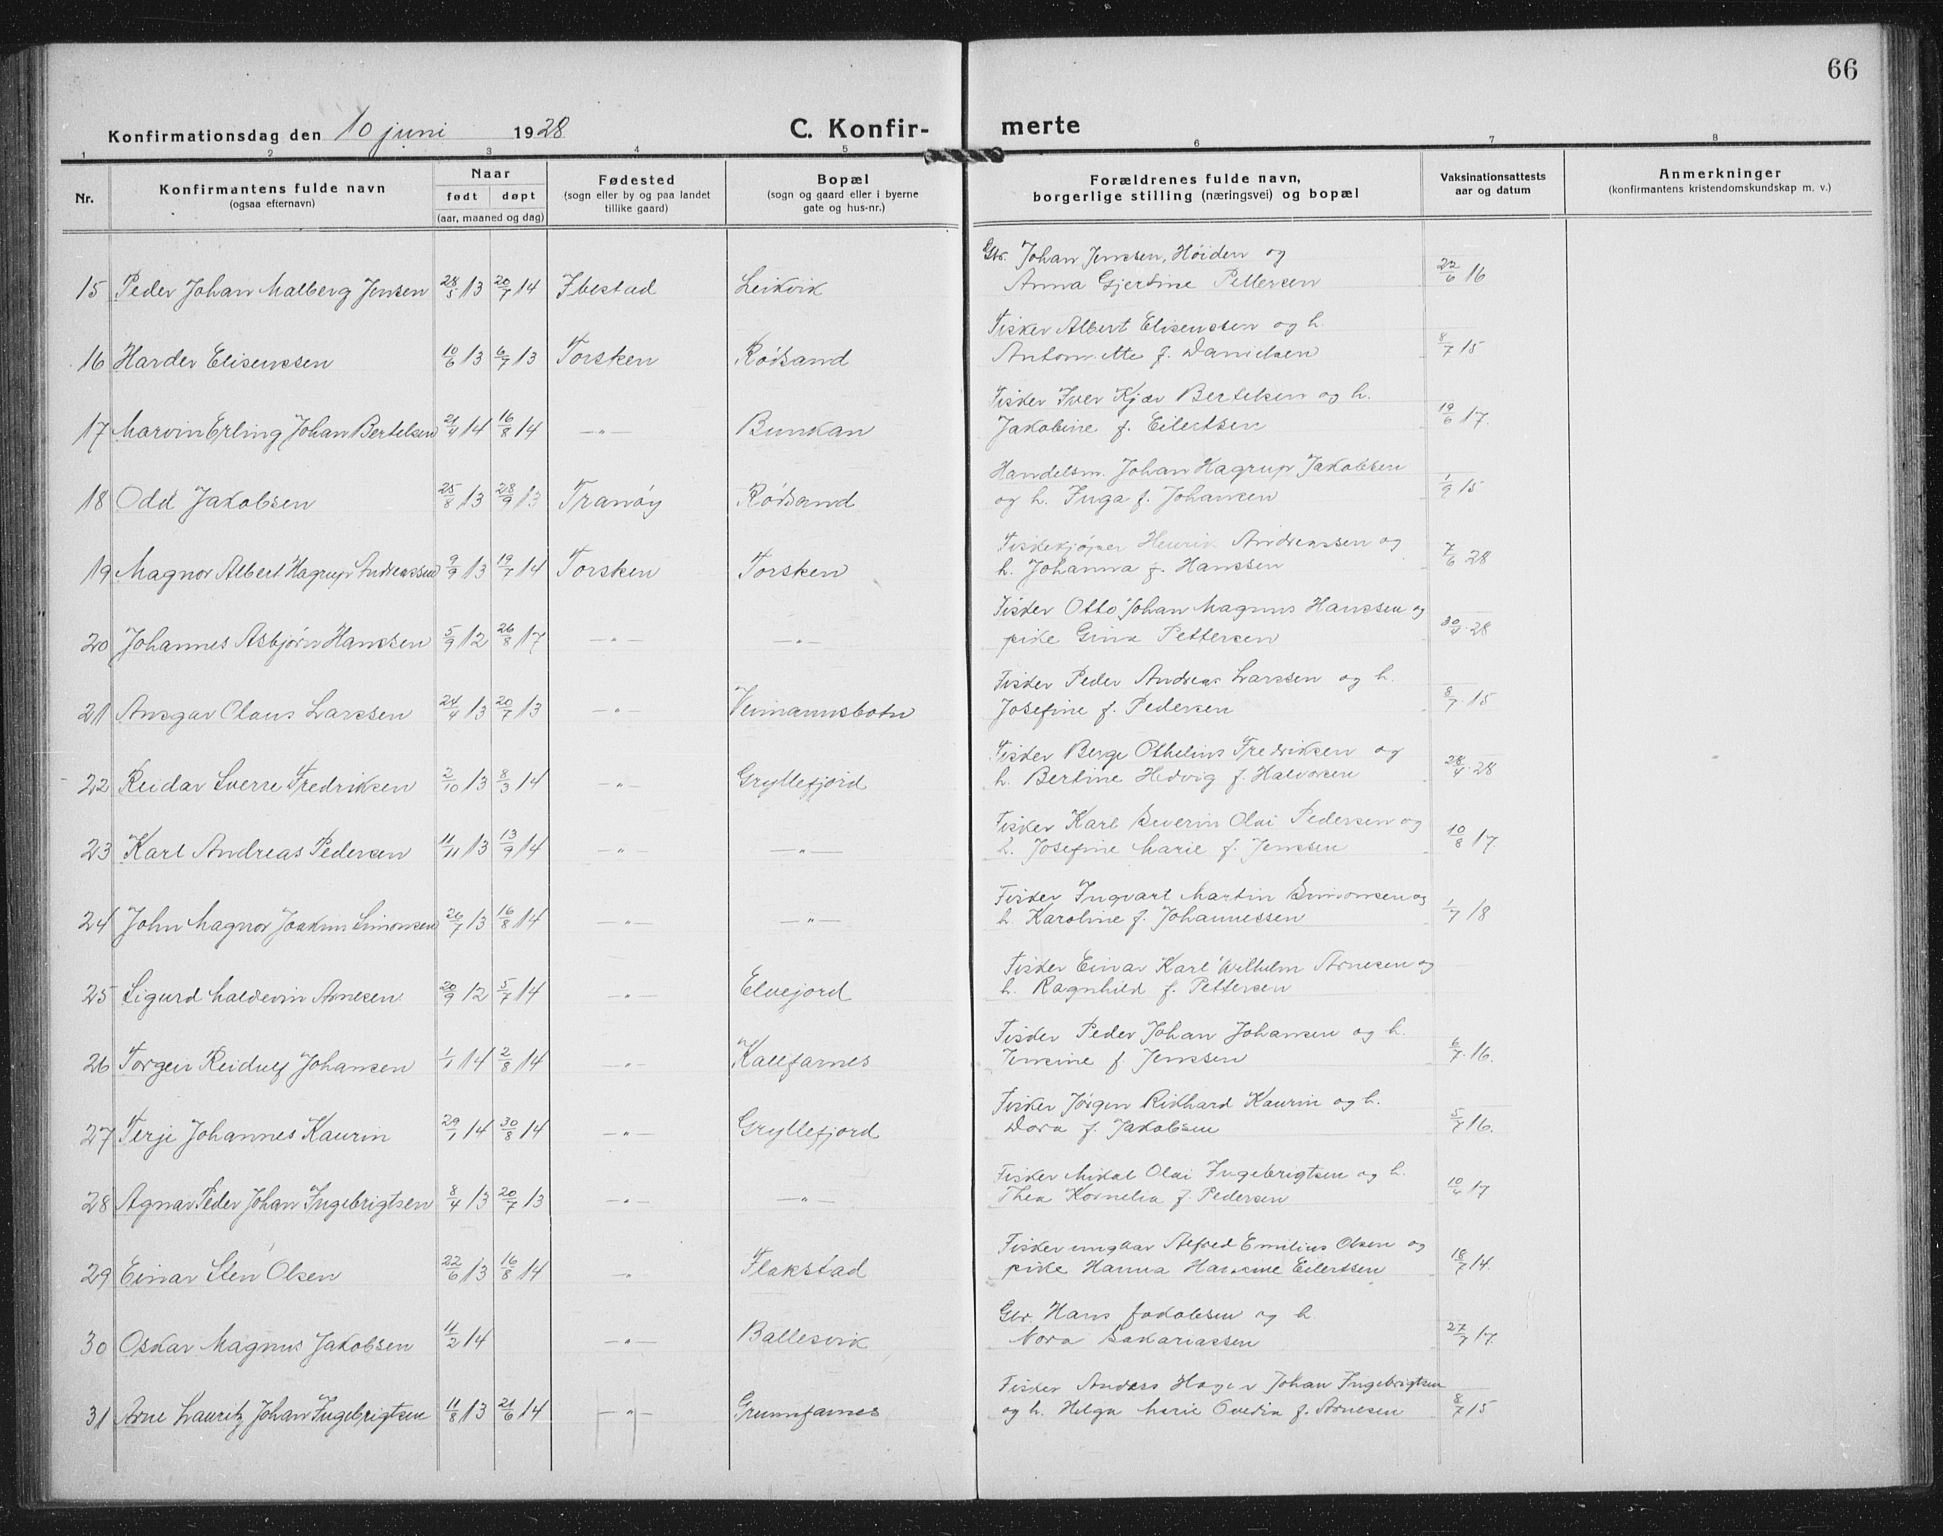 66
Konfirmationsdag den 10 juni 1928 C. Konfir- merte
1 2 3 4 5 6 7 8
Nr. Konfirmantens fulde navn (ogsaa efternavn) Naar født døpt (aar, maaned og dag) Fødested (sogn eller by og paa landet tillike gaard) Bopæl (sogn og gaard eller i byerne gate og hus-nr.) Forældrenes fulde navn, borgerlige stilling (næringsvei) og bopæl Vaksinationsattests aar og datum Anmerkninger (konfirmantens kristendomskundskap m. v.)
Gbr. Johan Jenssen, Høiden og
15 Peder Johan Malberg Jensen 28/5 13 20/7 14 Ibestad Leikvik Anna Gjertine Pettersen 22/6 16
Fisker Albert Elisenssen og h.
16 Harder Elisenssen 10/6 13 6/7 13 Torsken Rødsand Antonette f. Danielsen 8/7 15
Fisker Iver Kjær Bertelsen og h.
17 Marvin Erling Johan Bertelsen 21/4 14 16/8 14 —„— Bunkan Jakobine f. Eilertsen 19/6 17.
Handelsm. Johan Hagrup Jakobsen
18 Odd Jakobsen 25/8 13 28/9 13 Tranøy Rødsand og h. Inga f. Johansen 1/9 15
Henrik Andreassen og
19 Magnor Albert Hagrup Andreassen 9/9 13 19/7 14 Torsken Torsken h. Johanna f. Hanssen 7/6 28
Fisker Otto Johan Magnus Hanssen og
20 Johannes Asbjørn Hanssen 5/9 12 26/8 17 —„— —„— pike Gina Pettersen 28
Fisker Peder Andreas Larssen og h.
21 Ansgar Olaus Larssen 24/4 13 20/7 13 —„— Veimannsbotn Josefine f. Pedersen 8/7 15
Fisker Berge Othelius Fredriksen og
22 Reidar Sverre Fredriksen 2/10 13 8/3 14 —„— Gryllefjord h. Bertine Hedvig f. Halvorsen 28/4 28
Fisker Karl Severin Olai Pedersen og
23 Karl Andreas Pedersen 11/11 13 13/9 14 —„— —„— h. Josefine Marie f. Jenssen 10/8 17
Fisker Ingvart Martin Simonsen og
24 John Magnor Joakim Simonsen 26/7 13 16/8 14 —„— —„— h. Karoline f. Johannessen 1/7 18
Fisker Einar Karl Wilhelm Arnesen og
25 Sigurd Maldevin Arnesen 20/9 12 5/7 14 —„— Elvejord h. Ragnhild f. Pettersen
Fisker Peder Johan Johansen og h.
26 Torgeir Reidulf Johansen 1/1 14 2/8 14 —„— Kalfarnes Jensine f. Jenssen 6/7 16.
Fisker Jørgen Rikhard Kaurin og h.
27 Terje Johannes Kaurin 29/1 14 30/8 14 —„— Gryllefjord Dora f. Jakobsen 5/7 16.
Fisker Mikal Olai Ingebrigtsen og h.
28 Agnar Peder Johan Ingebrigtsen 8/4 13 20/7 13 —„— —„— Thea Kornelia f. Pedersen 17
Fisker ungkar Alfred Emilius Olsen og
29 Einar Sten Olsen 22/6 13 16/8 14 —„— Flakstad pike Hanna Eilertsen 18/7 14.
Gbr. Hans Jakobsen og h.
30 Oskar Magnus Jakobsen 11/2 14 —„— Ballesvik Nora Sakariassen 27/7 17.
Fisker Anders Johan Ingebrigtsen
31 Arne Lauritz Johan Ingebrigtsen 11/8 13 21/6 14 —„— Grunnfarnes og h. Helga Marie Ovedia f. Arnesen 8/7 15